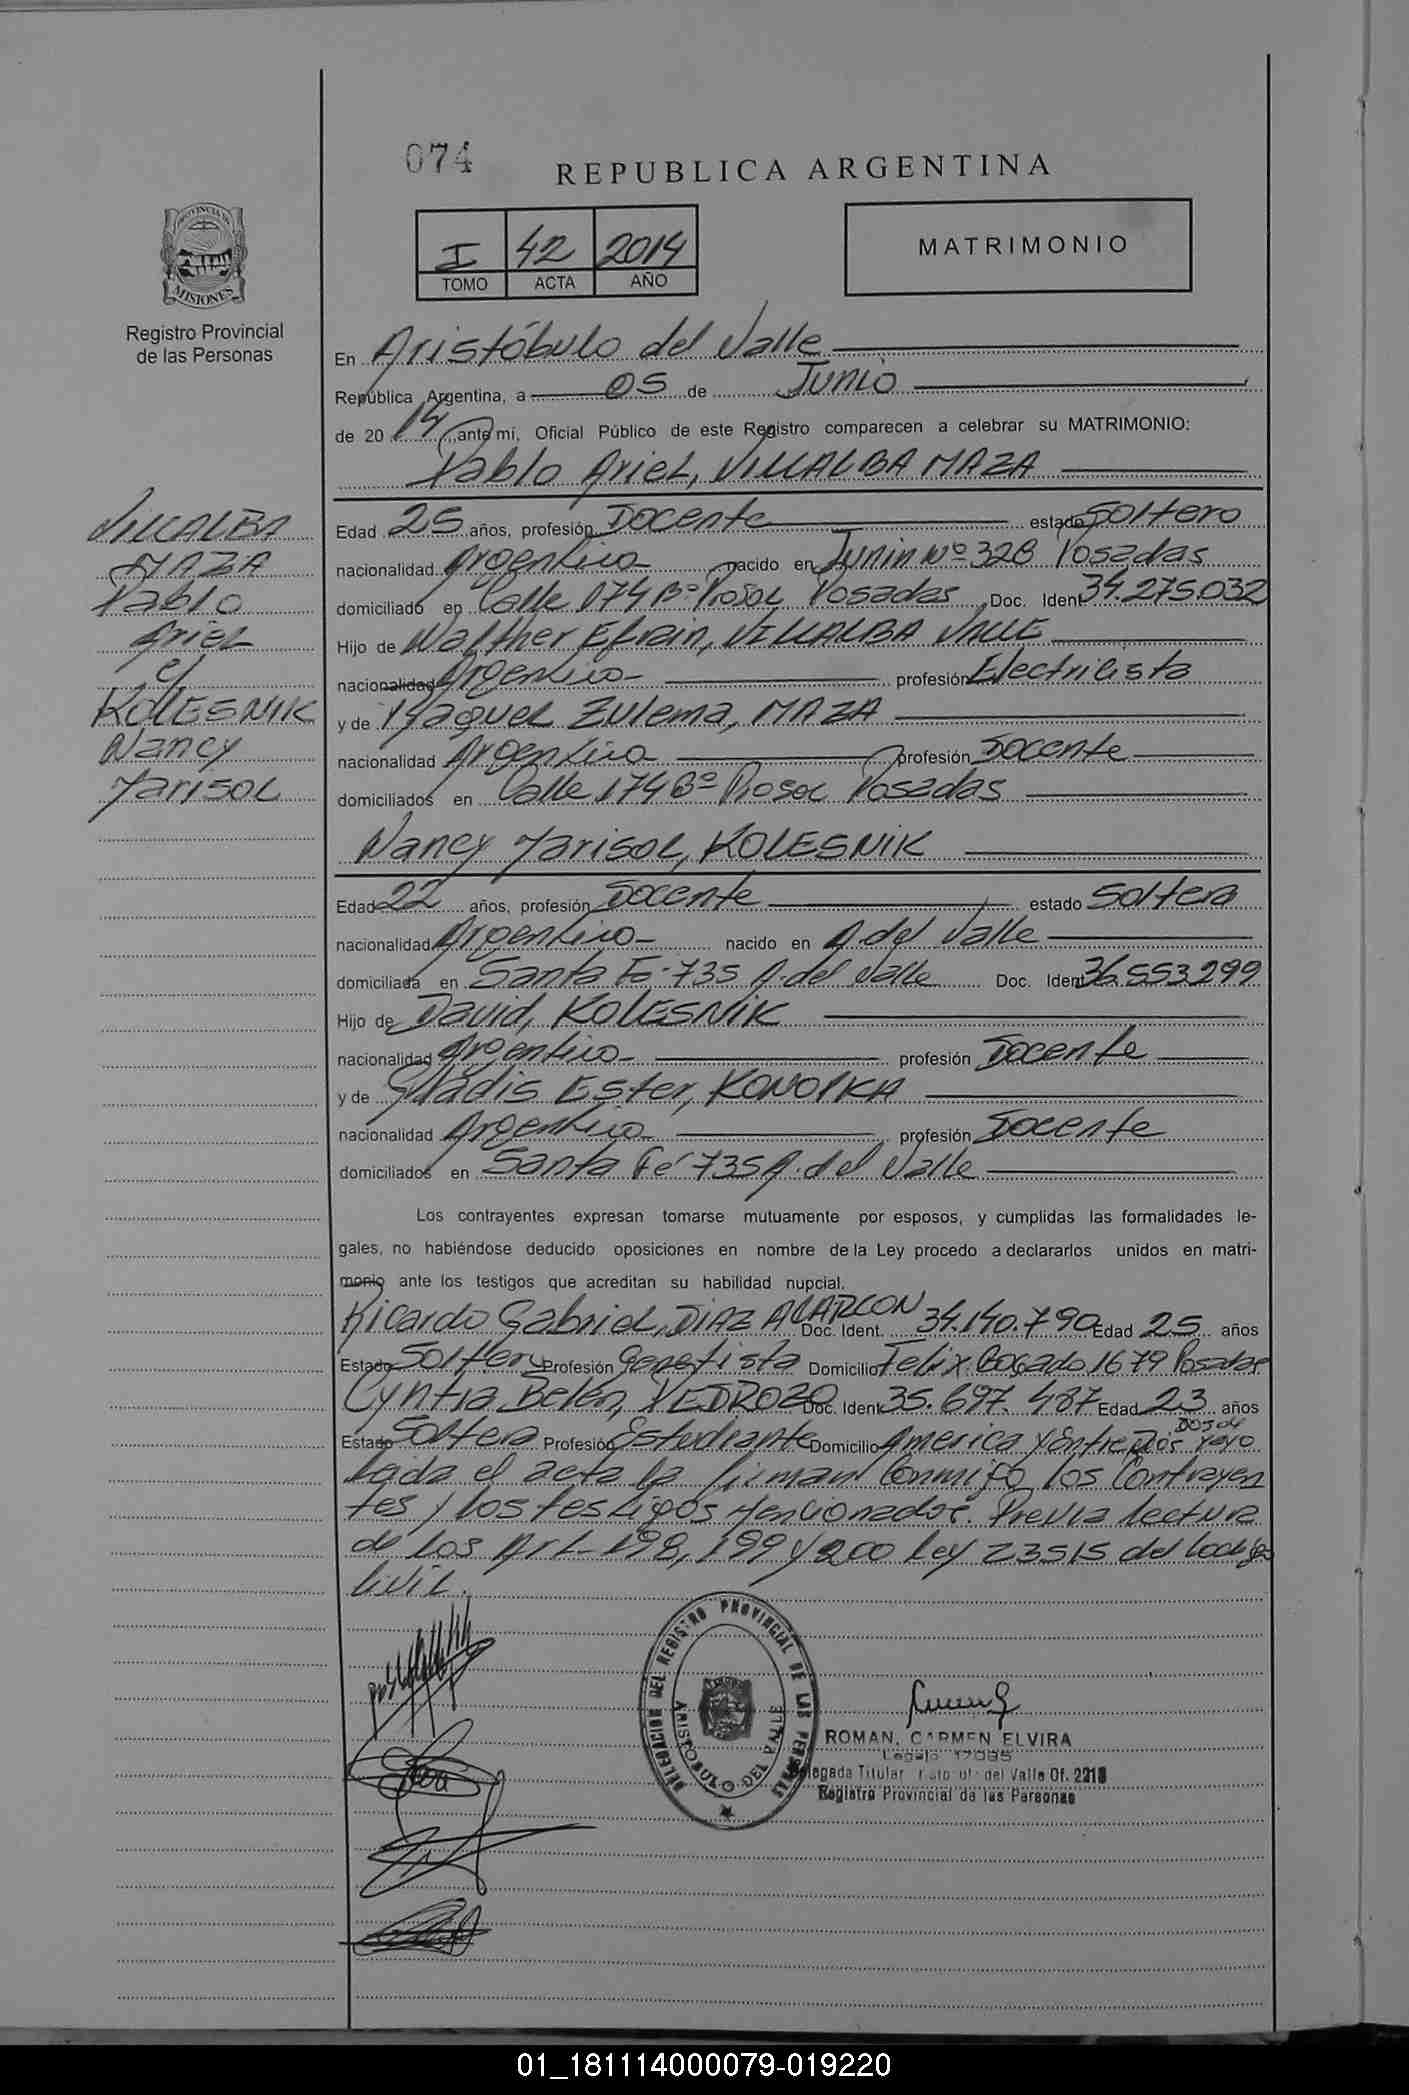 074
REPUBLICA ARGENTINA
I 42 2014
TOMO ACTA AÑO
MATRIMONIO
PROVINCIA DE
MISIONES
Registro Provincial
de las Personas
En Aristóbulo del Valle
República Argentina, a 05 de Junio
de 20 14 ante mí, Oficial Público de este Registro comparecen a celebrar su MATRIMONIO:
Pablo Ariel, VILLALBA MAZA
VILLALBA
MAZA
Pablo
Ariel
c/
KOLESNIK
Nancy
Marisol
Edad 25 años, profesión Docente estado Soltero
nacionalidad Argentina nacido en Junin Nº 328 Posadas
domiciliado en Calle 174 Bº Prosol Posadas Doc. Ident 34.275.032
Hijo de Walther Efrain, VILLALBA VALLE
nacionalidad Argentina profesión Electricista
y de Raquel Zulema, MAZA
nacionalidad Argentina profesión Docente
domiciliados en Calle 174 Bº Prosol Posadas
Nancy Marisol, KOLESNIK
Edad 22 años, profesión Docente estado Soltera
nacionalidad Argentina nacido en A. del Valle
domiciliada en Santa Fe 735 A. del Valle Doc. Ident 36.553.299
Hijo de David, KOLESNIK
nacionalidad Argentina profesión Docente
y de Gladis Ester, KONOPKA
nacionalidad Argentina profesión Docente
domiciliados en Santa Fé 735 A. del Valle
Los contrayentes expresan tomarse mutuamente por esposos, y cumplidas las formalidades le-
gales, no habiéndose deducido oposiciones en nombre de la Ley procedo a declararlos unidos en matri-
monio ante los testigos que acreditan su habilidad nupcial.
Ricardo Gabriel, DIAZ ALARCON Doc. Ident. 34.140.790 Edad 25 años
Estado Soltero Profesión Genetista Domicilio Felix Bogado 1679 Posadas
Cyntia Belén, PEDROZO Doc. Ident 35.697.487 Edad 23 años
Estado Soltera Profesión Estudiante Domicilio America y Entre Rios Dos de Mayo
Leida el acta la firman Conmigo los Contrayen
tes y los testigos Mencionados. Previa lectura
de los Art 198, 199 y 200 Ley 23515 del Codigo
Civil.
DELEGACION DEL REGISTRO PROVINCIAL DE LAS PERSONAS
ARISTOBULO DEL VALLE
ROMAN, CARMEN ELVIRA
Legajo
Delegada Titular del Valle Of. 2218
Registro Provincial de las Personas
01_181114000079-019220